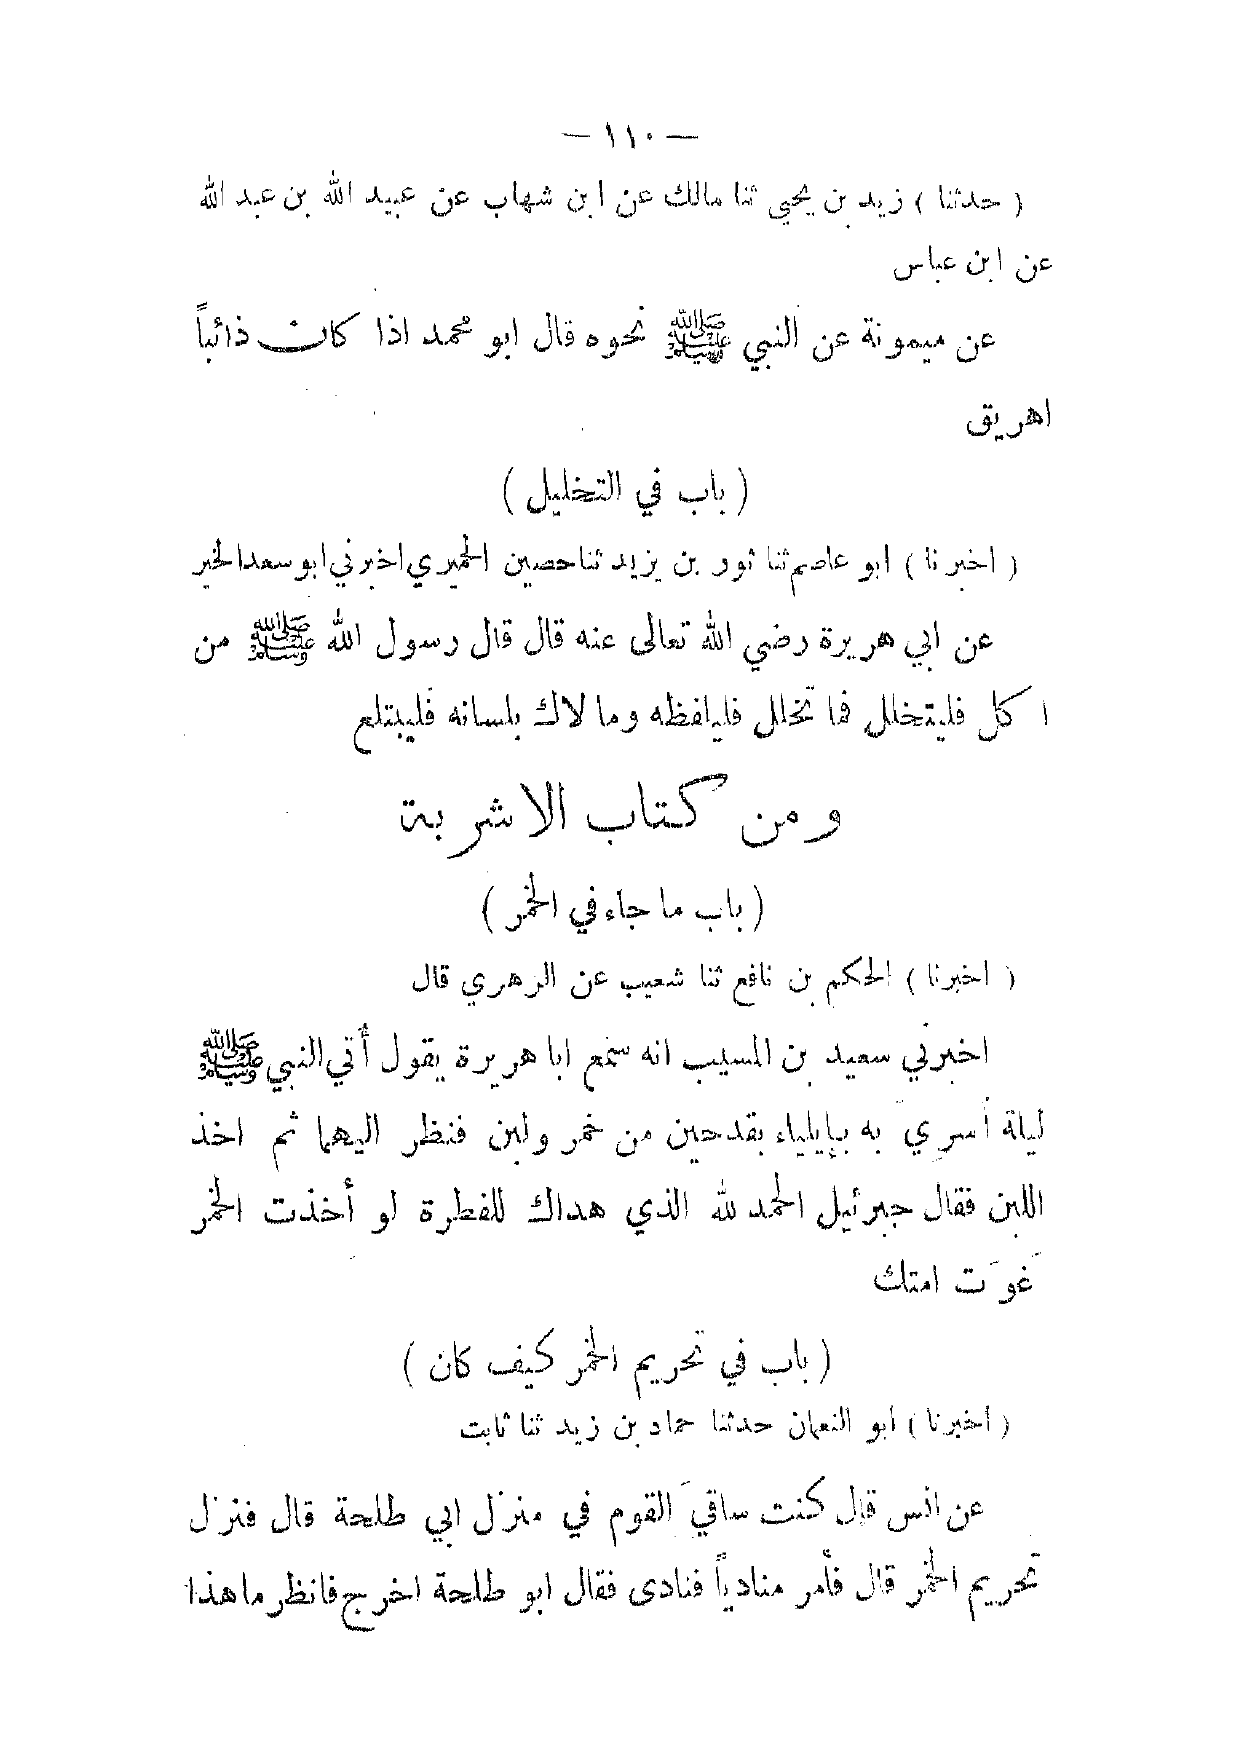 — ١١٠ —
( حدثنا ) زيد بن يحيى ثنا مالك عن ابن شهاب عن عبيد الله بن عبد الله
عن ابن عباس
عن ميمونة عن النبي ﷺ نحوه قال ابو محمد اذا كان ذائباً
اهريق
( باب في التخليل )
( اخبرنا ) ابو عاصم ثنا ثور بن يزيد ثنا حصين الحميري اخبرني ابو سعد الخير
عن ابي هريرة رضي الله تعالى عنه قال قال رسول الله ﷺ من
اكل فليتخلل فما تخلل فليلفظه وما لاك بلسانه فليبتلع
ومن كتاب الاشربة
( باب ما جاء في الخمر )
( اخبرنا ) الحكم بن نافع ثنا شعيب عن الزهري قال
اخبرني سعيد بن المسيب انه سمع ابا هريرة يقول أتي النبي ﷺ
ليلة أسري به بإيلياء بقدحين من خمر ولبن فنظر اليهما ثم اخذ
اللبن فقال جبرئيل الحمد لله الذي هداك للفطرة لو أخذت الخمر
غَوَت امتك
( باب في تحريم الخمر كيف كان )
( اخبرنا ) ابو النعمان حدثنا حماد بن زيد ثنا ثابت
عن انس قال كنت ساقيَ القوم في منزل ابي طلحة قال فنزل
تحريم الخمر قال فأمر منادياً فنادى فقال ابو طلحة اخرج فانظر ما هذا